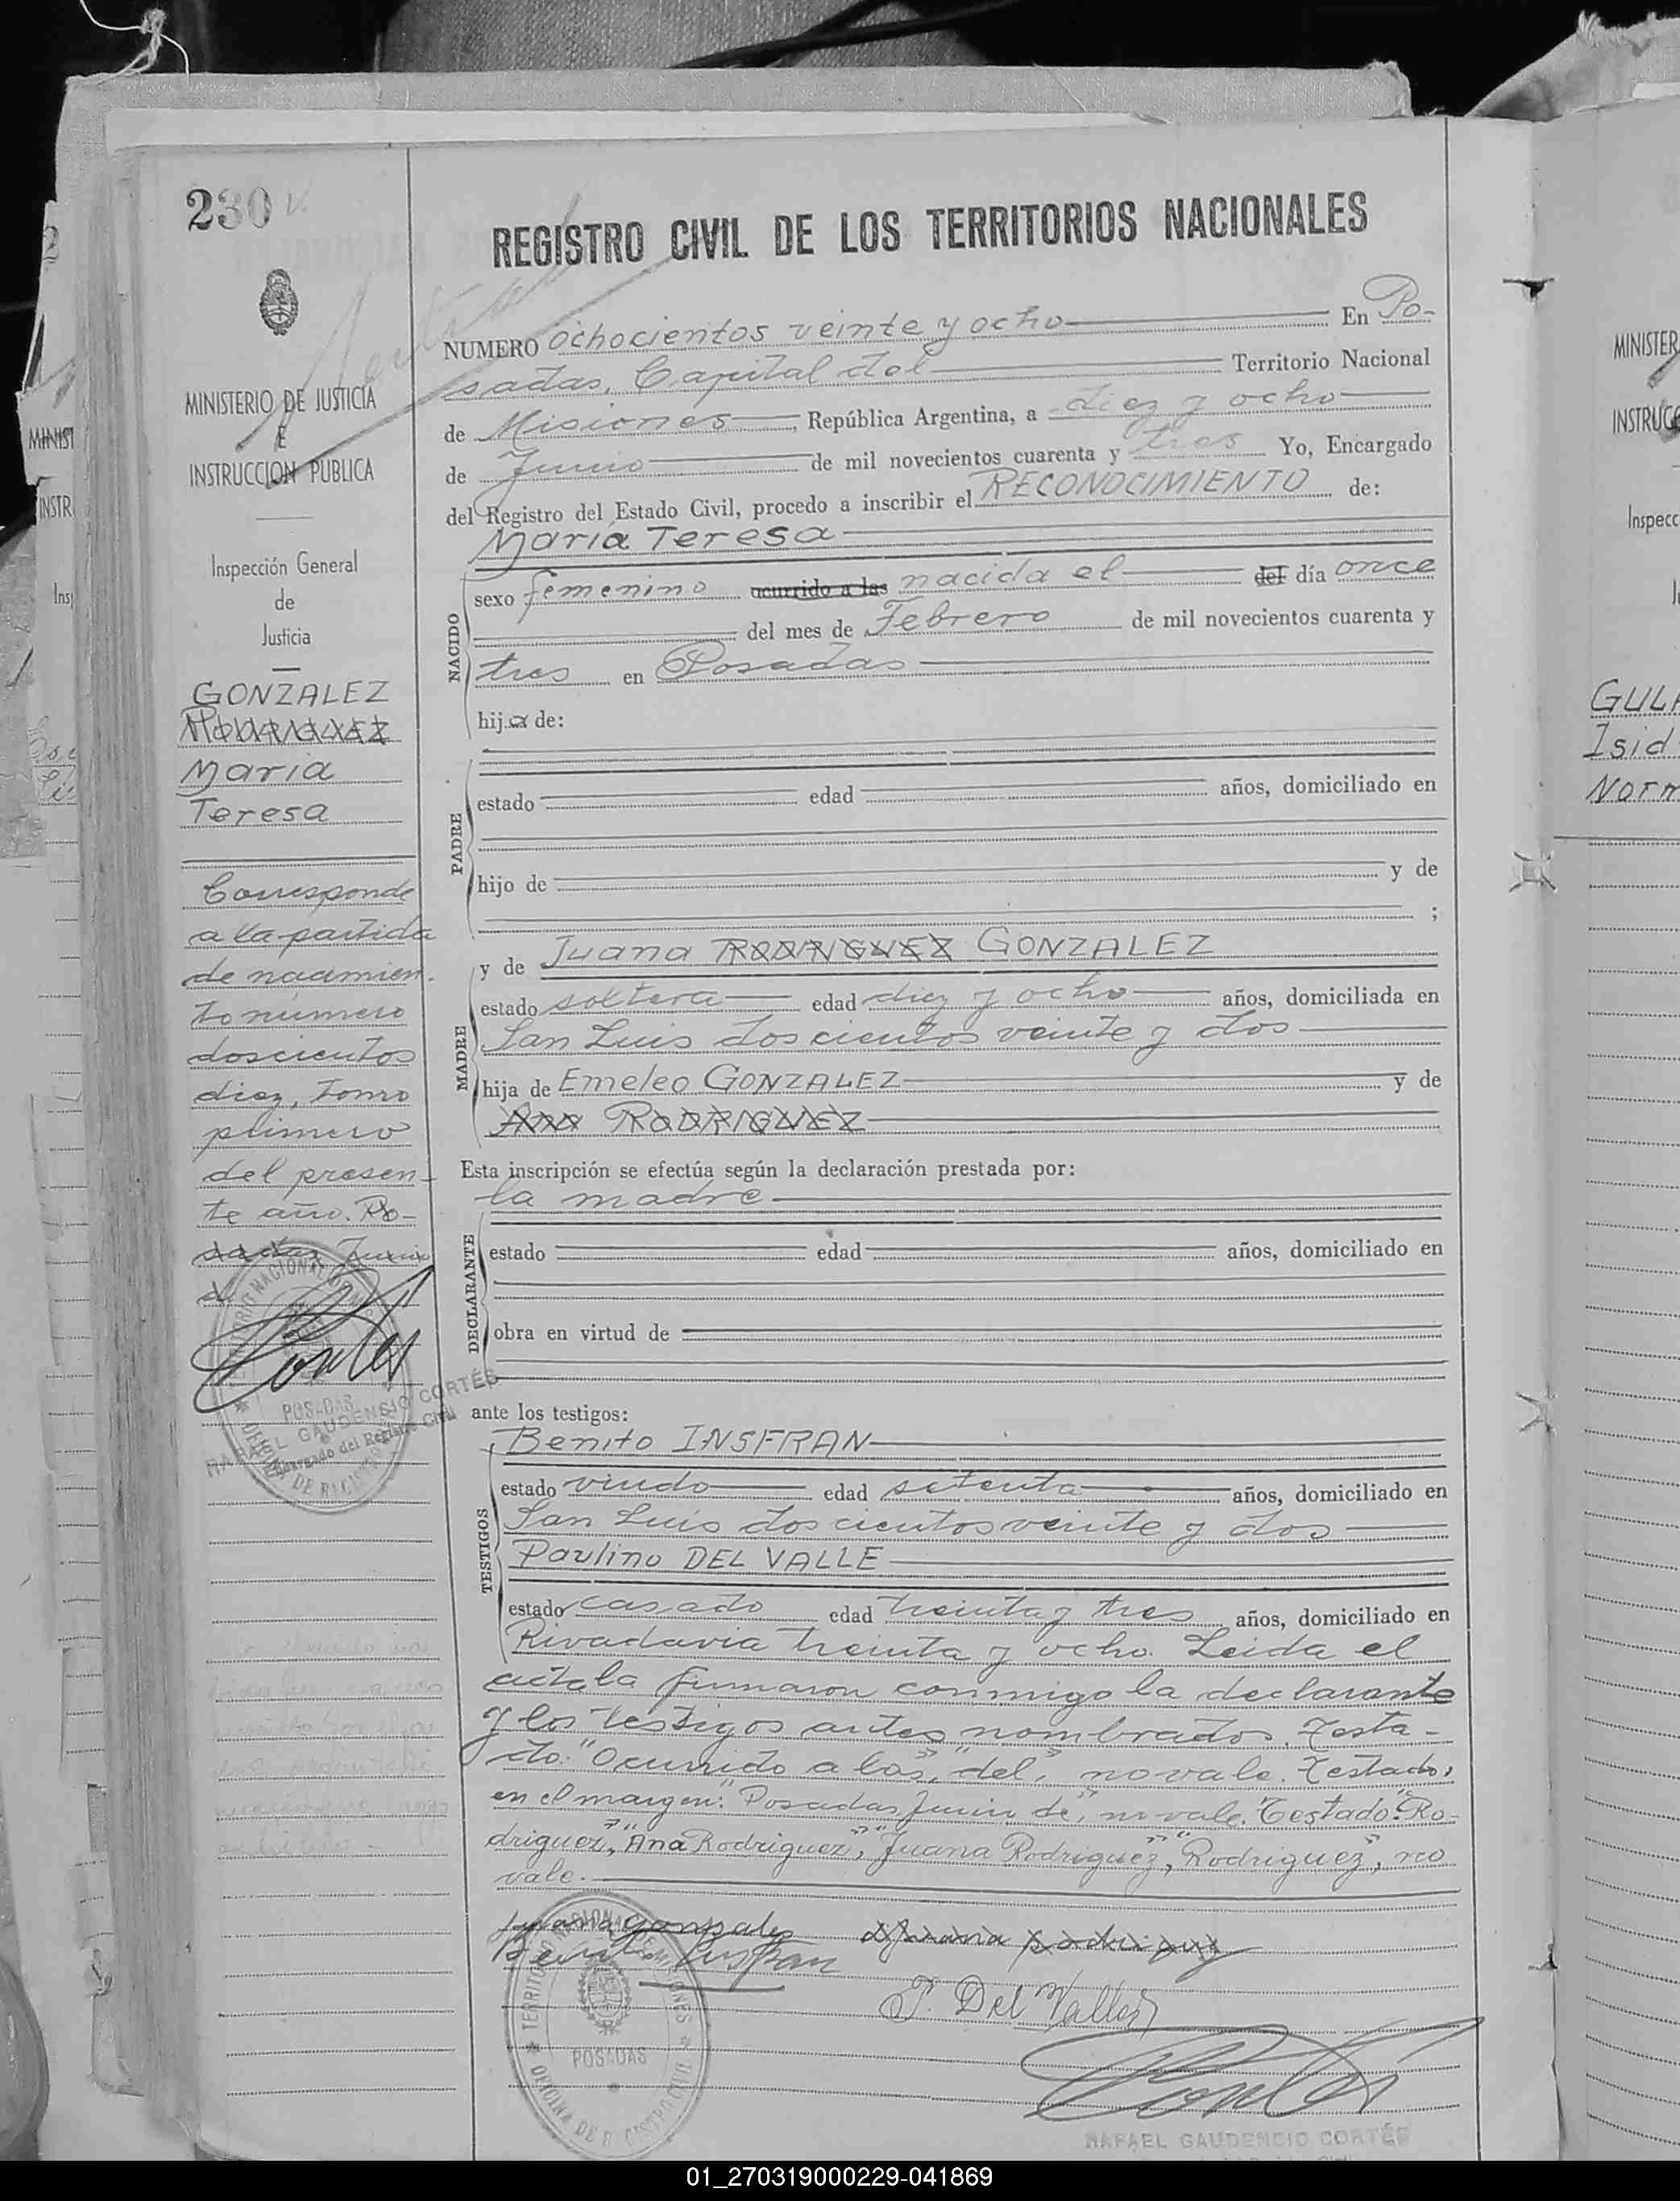 230 v.
REGISTRO CIVIL DE LOS TERRITORIOS NACIONALES
MINISTERIO DE JUSTICIA
E
INSTRUCCION PUBLICA
Inspección General
de
Justicia
GONZALEZ
RODRIGUEZ
María
Teresa
Corresponde
a la partida
de nacimien-
to número
doscientos
diez, tomo
primero
del presen-
te año. Po-
sadas, Junio
de
POSADAS
RAFAEL GAUDENSIO CORTÉS
Encargado del Registro Civil
NUMERO ochocientos veinte y ocho En Po-
sadas, Capital del Territorio Nacional
de Misiones, República Argentina, a diez y ocho
de Junio de mil novecientos cuarenta y tres Yo, Encargado
del Registro del Estado Civil, procedo a inscribir el RECONOCIMIENTO de:
María Teresa
NACIDO
sexo femenino ocurrido a las nacida el del día once
del mes de Febrero de mil novecientos cuarenta y
tres en Posadas
hija de:
PADRE
estado edad años, domiciliado en
hijo de y de
;
y de Juana RODRIGUEZ GONZALEZ
MADRE
estado soltera edad diez y ocho años, domiciliada en
San Luis doscientos veinte y dos
hija de Emeleo GONZALEZ y de
Ana RODRIGUEZ
Esta inscripción se efectúa según la declaración prestada por:
la madre
DECLARANTE
estado edad años, domiciliado en
obra en virtud de
ante los testigos:
TESTIGOS
Benito INSFRAN
estado viudo edad setenta años, domiciliado en
San Luis doscientos veinte y dos
Paulino DEL VALLE
estado casado edad treinta y tres años, domiciliado en
Rivadavia treinta y ocho. Leida el
acta la firmaron conmigo la declarante
y los testigos antes nombrados. Testa-
do: "Ocurrido a las", "del", no vale. Testado,
en el margen: "Posadas Junio de", no vale. Testado: "Ro-
driguez", "Ana Rodriguez", "Juana Rodriguez", "Rodriguez", no
vale.
Juana gonzalez Juana Rodriguez
Benito Insfran
P. Del Valle
TERRITORIO NACIONAL DE MISIONES
POSADAS
OFICINA DE REGISTRO CIVIL
RAFAEL GAUDENCIO CORTÉS
MINISTER
INSTRUCC
Inspecc
GULA
Isid
Norm
01_270319000229-041869